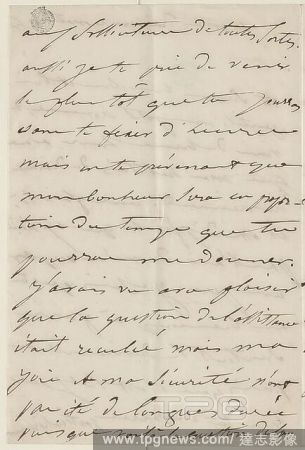 aux solliciteurs de toutes sortes.
aussi je te prie de venir
le plus tôt que tu pourras
sans te fixer d'heure
mais en te prévenant que
mon bonheur sera en propor-
tion du temps que tu
pourras me donner.
J'avais vu avec plaisir
que la question de l'assistance
était reculée mais ma
joie et ma sécurité n'ont
pas été de longue durée
puis que
www.tpgnews.com / 達志影像